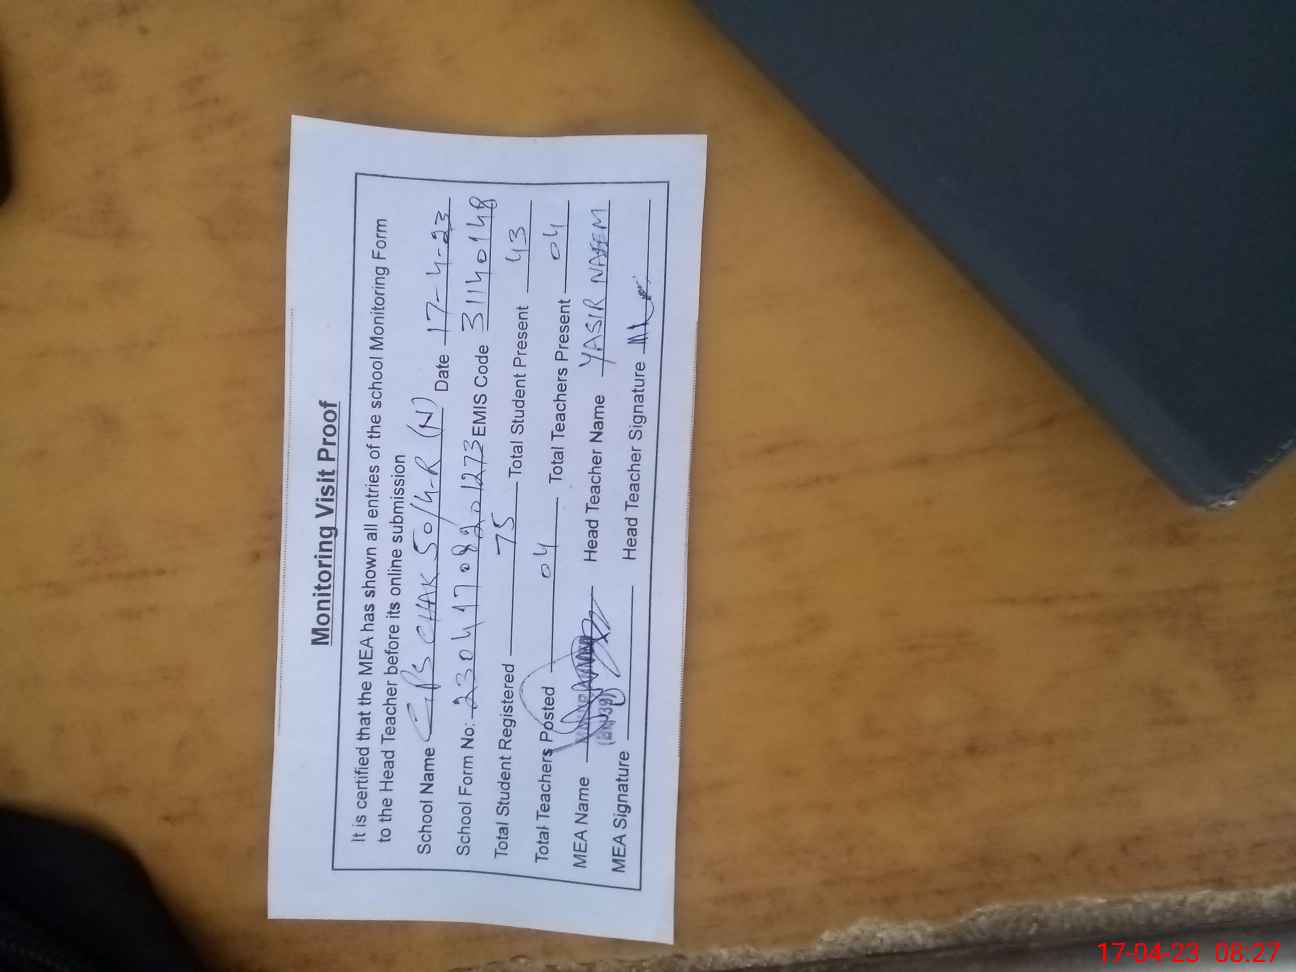 Monitoring Visit Proof
It is certified that the MEA has shown all entries of the school Monitoring Form
to the Head Teacher before its online submission
School Name GPS CHAK 50/4-R (N) Date 17-4-23
School Form No: 23041708201273 EMIS Code 31140148
Total Student Registered 75 Total Student Present 43
Total Teachers Posted 04 Total Teachers Present 04
MEA Name Head Teacher Name YASIR NAEEM
MEA Signature Head Teacher Signature
17-04-23 08:27